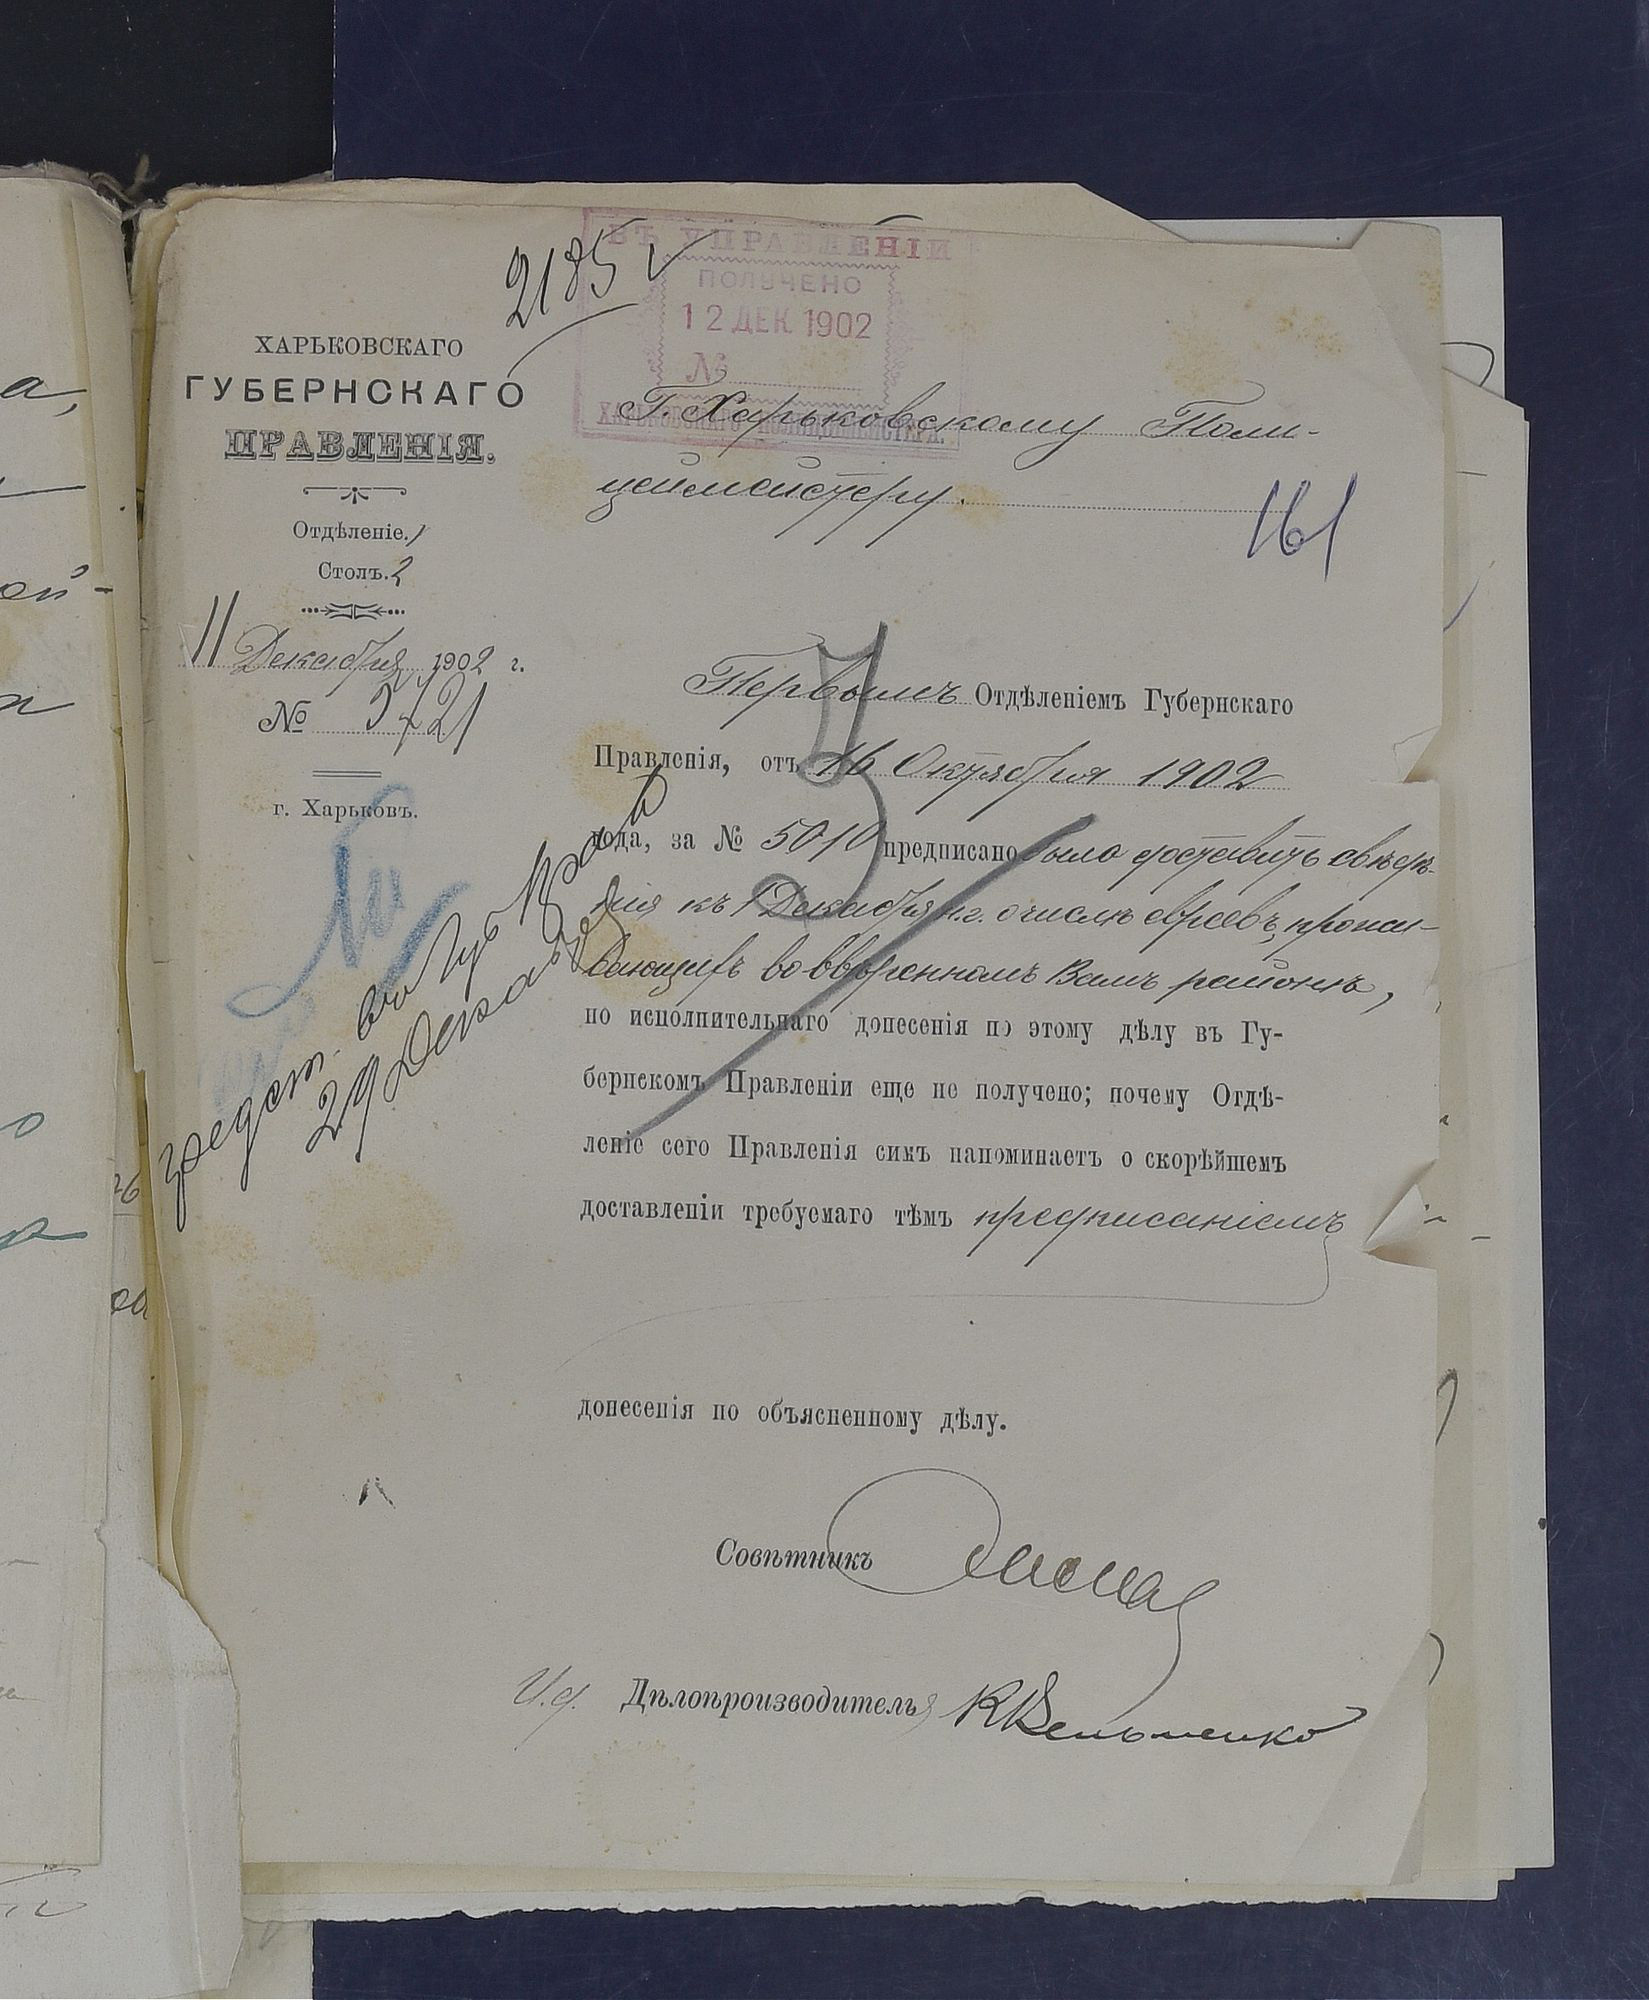 2185
ВЪ УПРАВЛЕНІИ
ПОЛУЧЕНО
12 ДЕК. 1902
№
ХАРЬКОВСКАГО ПОЛИЦЕЙМЕЙСТЕРА.
ХАРЬКОВСКАГО
ГУБЕРНСКАГО
ПРАВЛЕНІЯ.
Отдѣленіе. 1
Столъ. 2
11 Декабря 1902 г.
№ 5721
г. Харьковъ.
Г. Харьковскому Поли-
цеймейстеру.
161
Первымъ Отдѣленіемъ Губернскаго
Правленія, отъ 16 Октября 1902
года, за № 5010 предписано было доставить свѣдѣ-
нія къ 1 Декабря н.г. о числѣ евреевъ, прожи-
вающихъ во ввѣренномъ Вамъ районѣ,
но исполнительнаго донесенія по этому дѣлу въ Гу-
бернскомъ Правленіи еще не получено; почему Отдѣ-
леніе сего Правленія симъ напоминаетъ о скорѣйшемъ
доставленіи требуемаго тѣмъ предписаніемъ
донесенія по объясненному дѣлу.
Совѣтникъ
И.д. Дѣлопроизводителя
29 Декабря